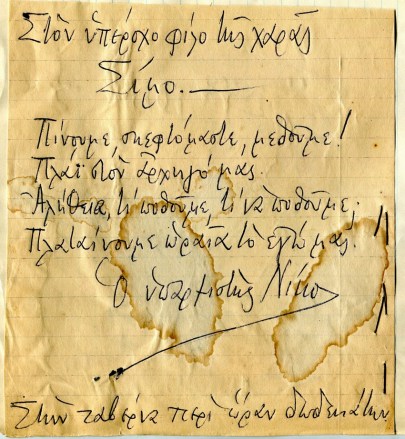 Στὸν ὑπέροχο φίλο τῆς χαρᾶς
Σῖμο.
Πίνουμε, σκεφτόμαστε, μεθοῦμε!
Πλάϊ στὸν ἀρχηγό μας.
Ἀλήθεια, τί ποθοῦμε, τί νὰ ποθοῦμε;
Πλαταίνουμε ὡραῖα τὸ ἐγώ μας.
Ὁ ὑπαρξιστὴς Νίκο
Στὴν ταβέρνα περὶ ὥραν δωδεκάτην